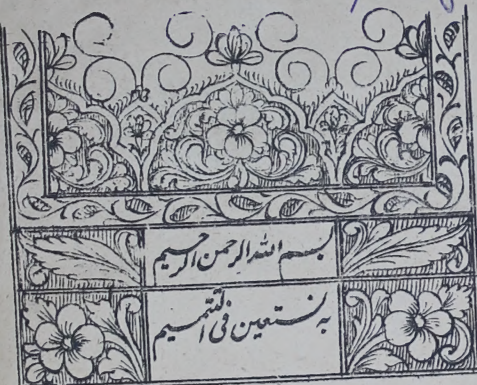 بسم الله الرحمن الرحیم
به نستعین فی التتمیم